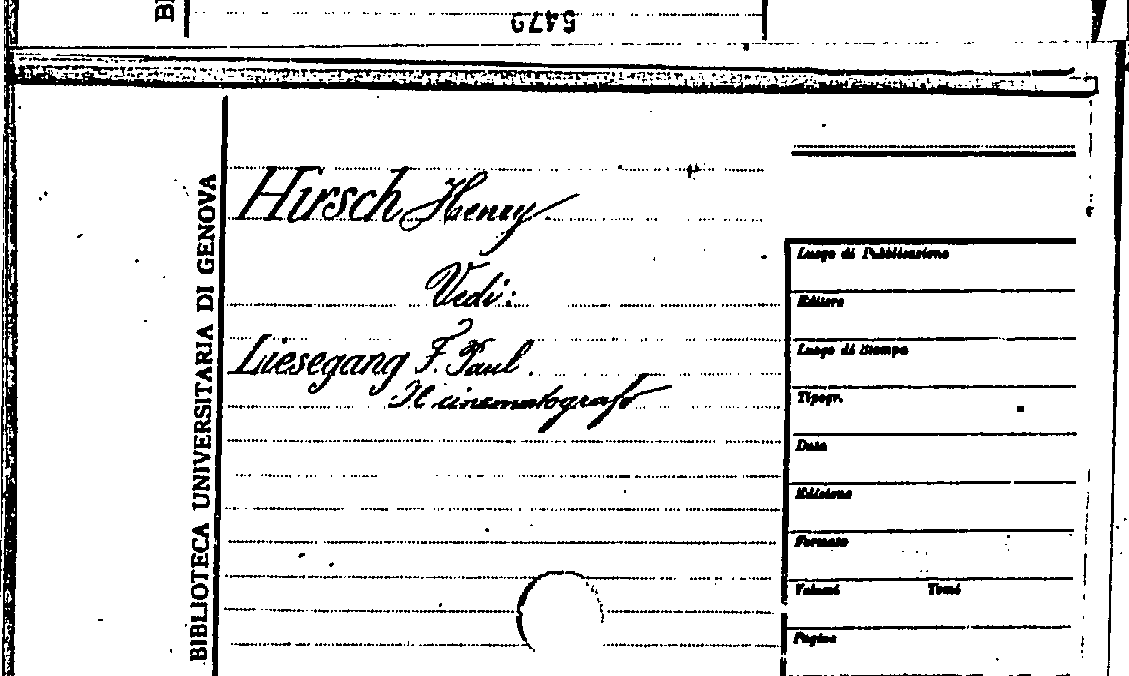 5479
BIBLIOTECA UNIVERSITARIA DI GENOVA
Hirsch Henry
Vedi:
Liesegang F. Paul.
Il cinematografo
Luogo di Pubblicazione
Editore
Luogo di Stampa
Tipogr.
Data
Edizione
Formato
Volumi Tomi
Pagine